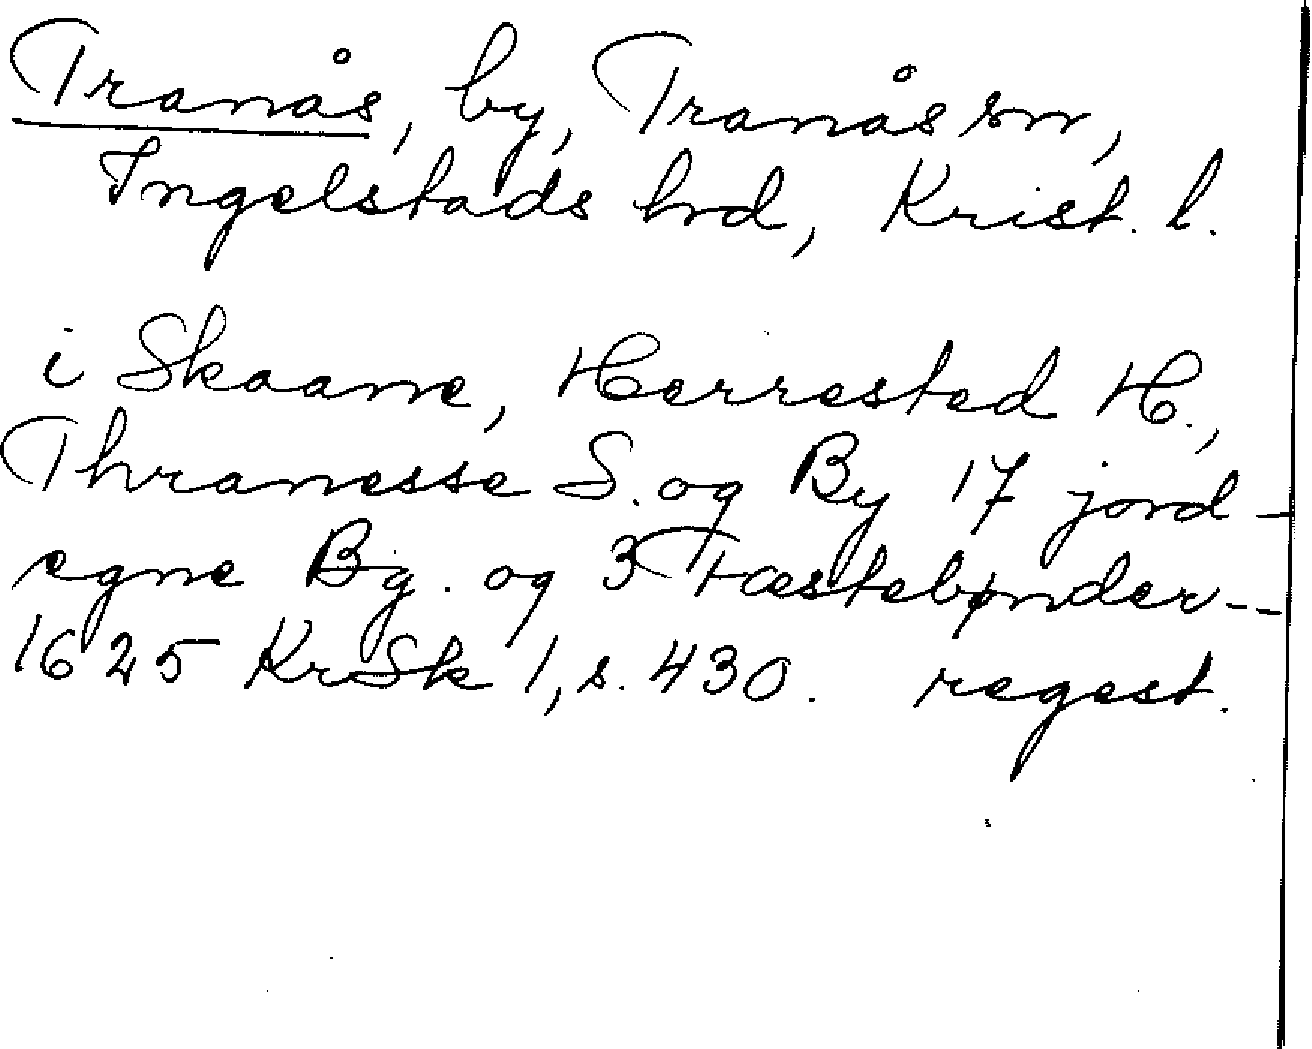 Tranås, by, Tranås sn,
Ingelstads hrd, Krist. l.
i Skaane, Herrested H.,
Thranesse S. og By 17 jord-
egne Bg. og 3 Fæstebønder--
1625 KrSk 1, s. 430. regest.